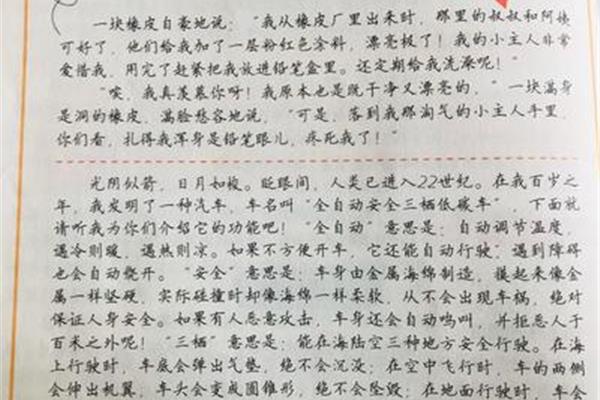 一块橡皮自豪地说：“我从橡皮厂里出来时，那里的叔叔和阿姨
可好了，他们给我加了一层粉红色涂料，漂亮极了！我的小主人非常
爱惜我，用完了赶紧把我放进铅笔盒里。还定期给我洗澡呢！”
“唉，我真羡慕你呀！我原本也是既干净又漂亮的，”一块满身
是洞的橡皮，满脸愁容地说，“可是，落到我那淘气的小主人手里，
你们看，扎得我浑身是铅笔眼儿，疼死我了！”
光阴似箭，日月如梭。眨眼间，人类已进入22世纪。在我百岁之
年，我发明了一种汽车，车名叫“全自动安全三栖低碳车”，下面就
请听我为你们介绍它的功能吧！“全自动”意思是：自动调节温度，
遇冷则暖，遇热则凉。如果不方便开车，它还能自动行驶；遇到障碍
也会自动绕开。“安全”意思是：车身由金属海绵制造，摸起来像金
属一样坚硬，实际碰撞时却像海绵一样柔软，从不会出现车祸，绝对
保证人身安全。如果有人恶意攻击，车身还会自动鸣叫，并拒恶人于
百米之外呢！“三栖”意思是：能在海陆空三种地方安全行驶。在海
上行驶时，车底会弹出气垫，绝不会沉没；在空中飞行时，车的两侧
会伸出机翼，车头会变成圆锥形，绝不会坠毁；在地面行驶时，车会